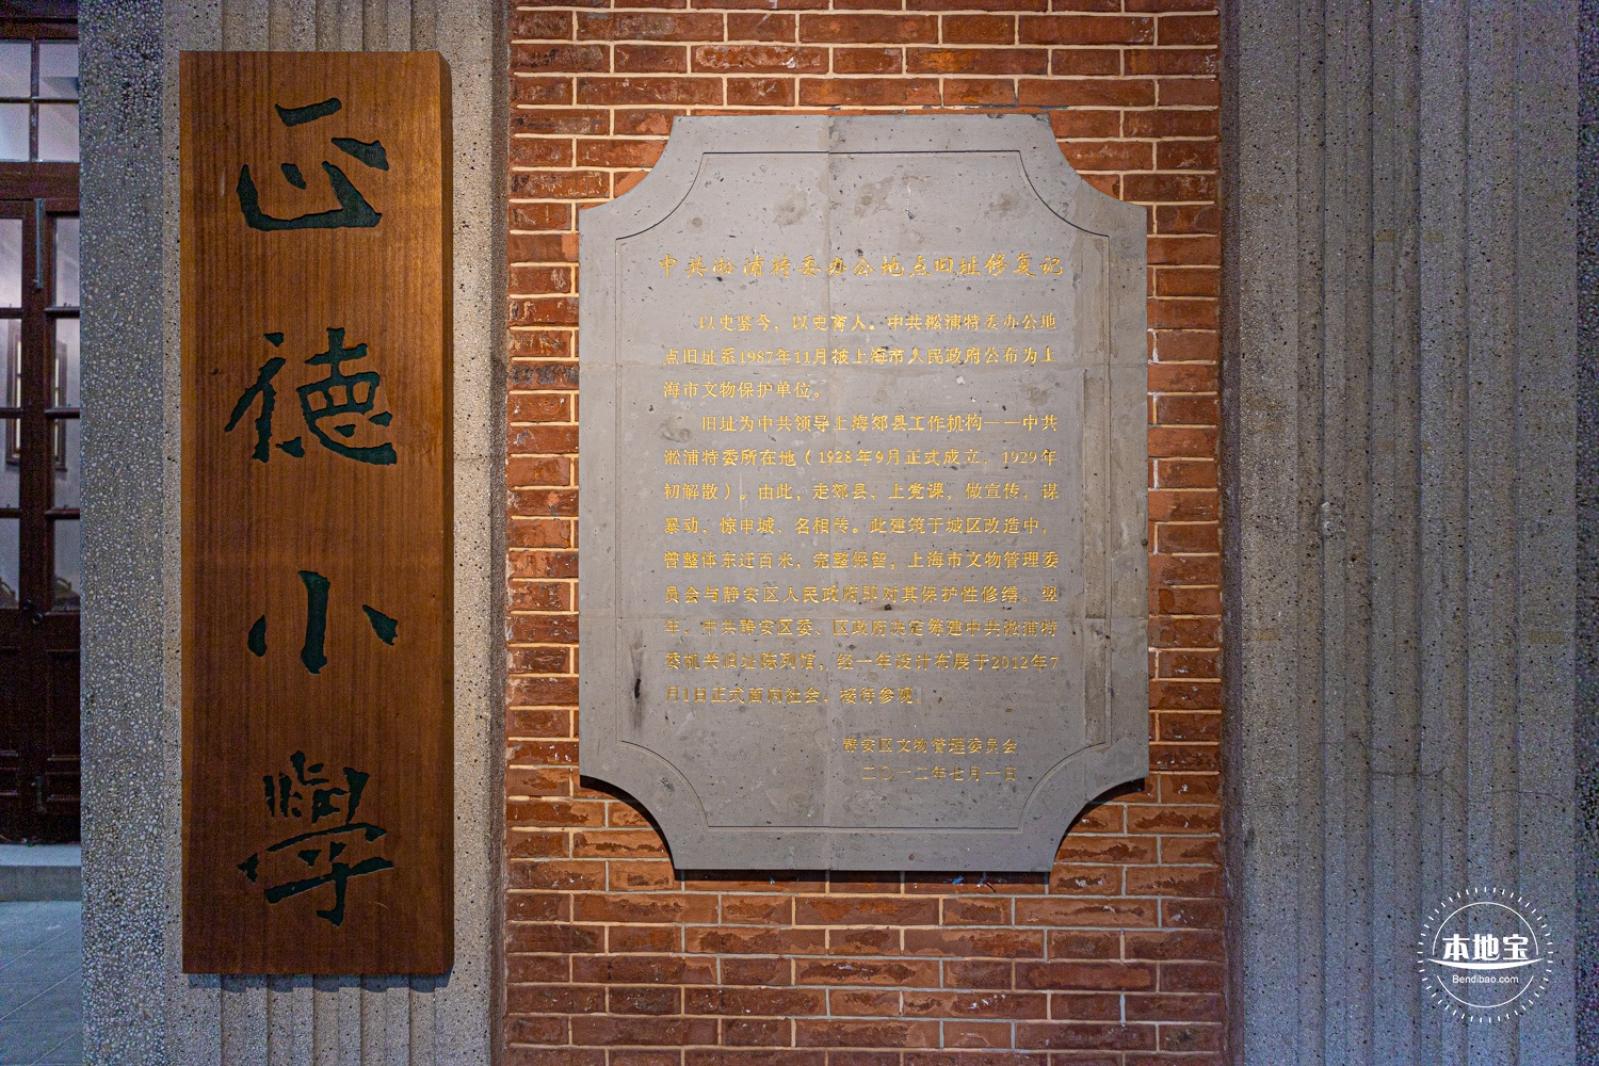 正德小學
中共淞浦特委办公地点旧址修复记
以史鉴今，以史育人。中共淞浦特委办公地
点旧址系1987年11月被上海市人民政府公布为上
海市文物保护单位。
旧址为中共领导上海郊县工作机构——中共
淞浦特委所在地（1928年9月正式成立，1929年
初解散）。由此，走郊县、上党课，做宣传，谋
暴动、惊申城、名相传。此建筑于城区改造中，
曾整体东迁百米，完整保留，上海市文物管理委
员会与静安区人民政府即对其保护性修缮。翌
年，中共静安区委、区政府决定筹建中共淞浦特
委机关旧址陈列馆，经一年设计布展于2012年7
月1日正式面向社会，接待参观。
静安区文物管理委员会
二〇一二年七月一日
本地宝
Bendibao.com